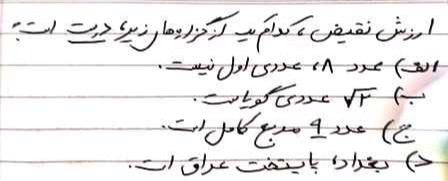 ارزش نقیض، کدام یک از گزاره‌های زیر، درست است؟
الف) عدد ۸، عددی اول نیست.
ب) √۲ عددی گویاست.
ج) عدد ۹ مربع کامل است.
د) بغداد، پایتخت عراق است.